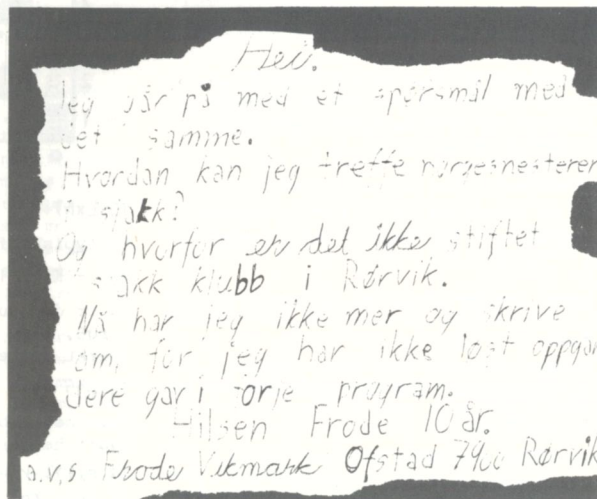 Hei.
Jeg går på med et spørsmål med
det samme.
Hvordan kan jeg treffe norgesmesteren
i sjakk?
Og hvorfor er det ikke stiftet
sjakk klubb i Rørvik.
Nå har jeg ikke mer og skrive
om, for jeg har ikke løst oppgav
dere gav i forje program.
Hilsen Frode 10 år.
a.v.s Frode Vikmark Ofstad 7900 Rørvik